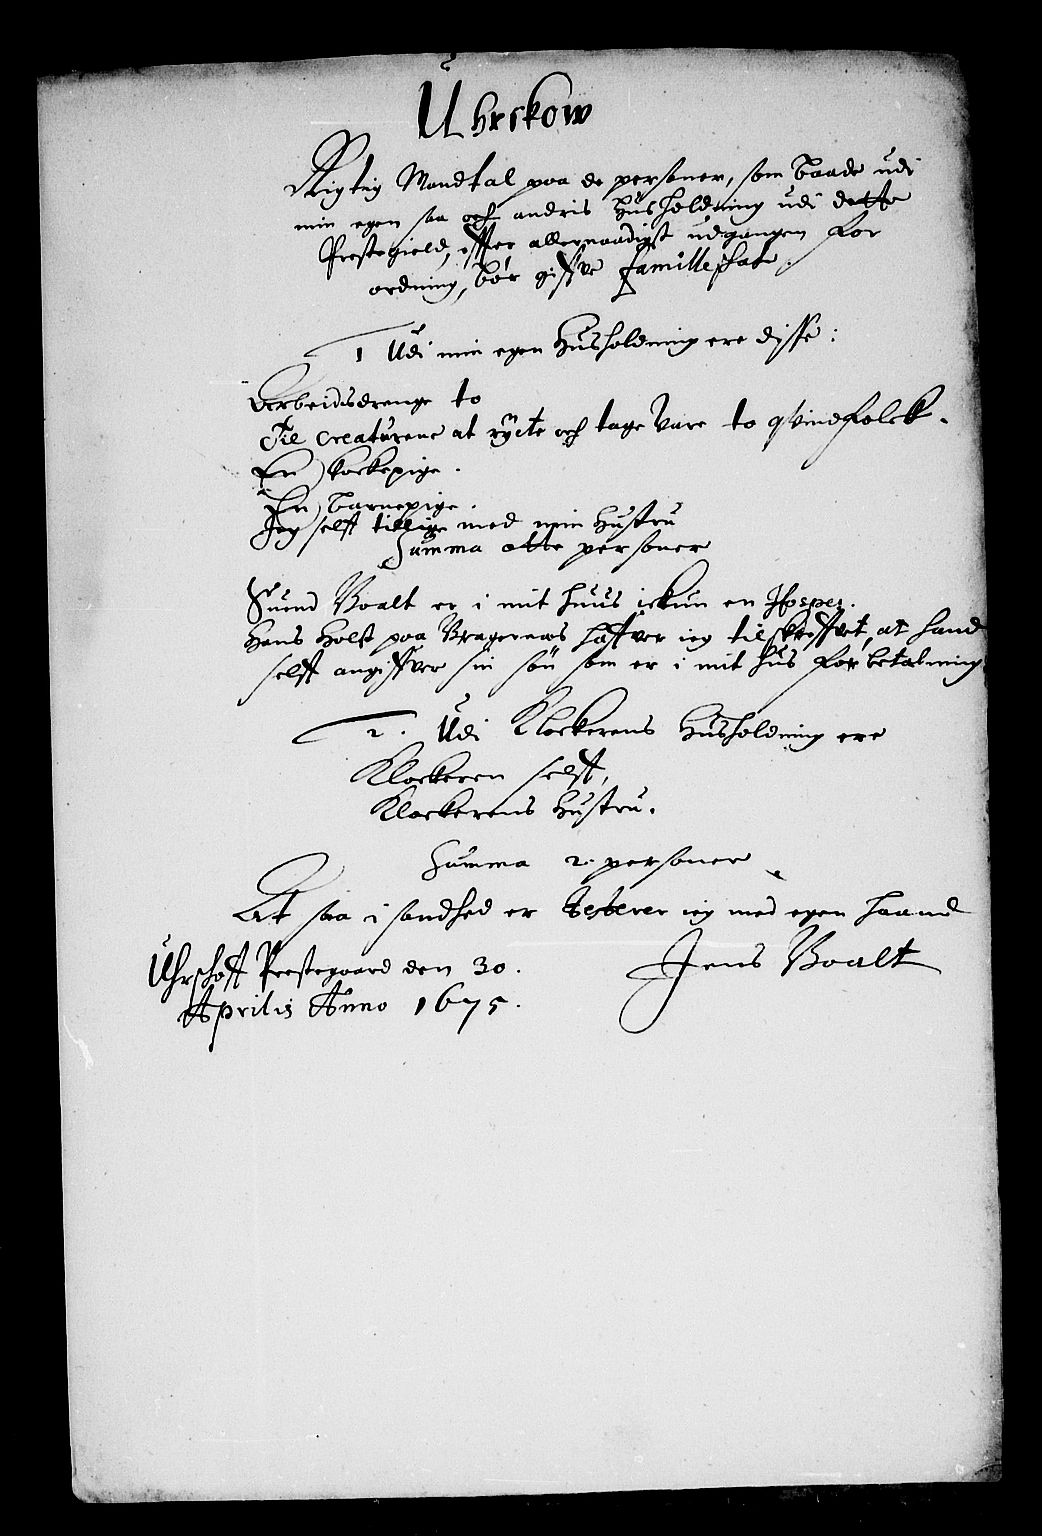 Uhrskow
Rigtig Mandtal paa de personer, som baade udi
min egen saa och andris Huusholdning udi dette
Prestegield, effter allernaadigst udgangen for
ordning, bør giffve familleskat.
1 Udi min egen Huusholdning ere disse:
Arbeidsdrenge to
Til creaturene at røcte och tage vare to qvindfolck.
En kockepige.
En barnepige.
Jeg selff tillige med min Hustru
Summa otte personer
Suend Boalt er i mit huus ickun en Hospes.
Hans Holst paa Bragernæs haffver ieg tilskreffvet, at hand
selff angiffver sin sön som er i mit hus for betalning
2. Udi Klockerens Huusholdning ere
Klockeren selff,
Klockerens Hustru.
Summa 2. personer
At saa i sandhed er testerer ieg med egen haand
Uhrschoff Prestegaard den 30.
Jens Boalt
Aprilis Anno 1675.